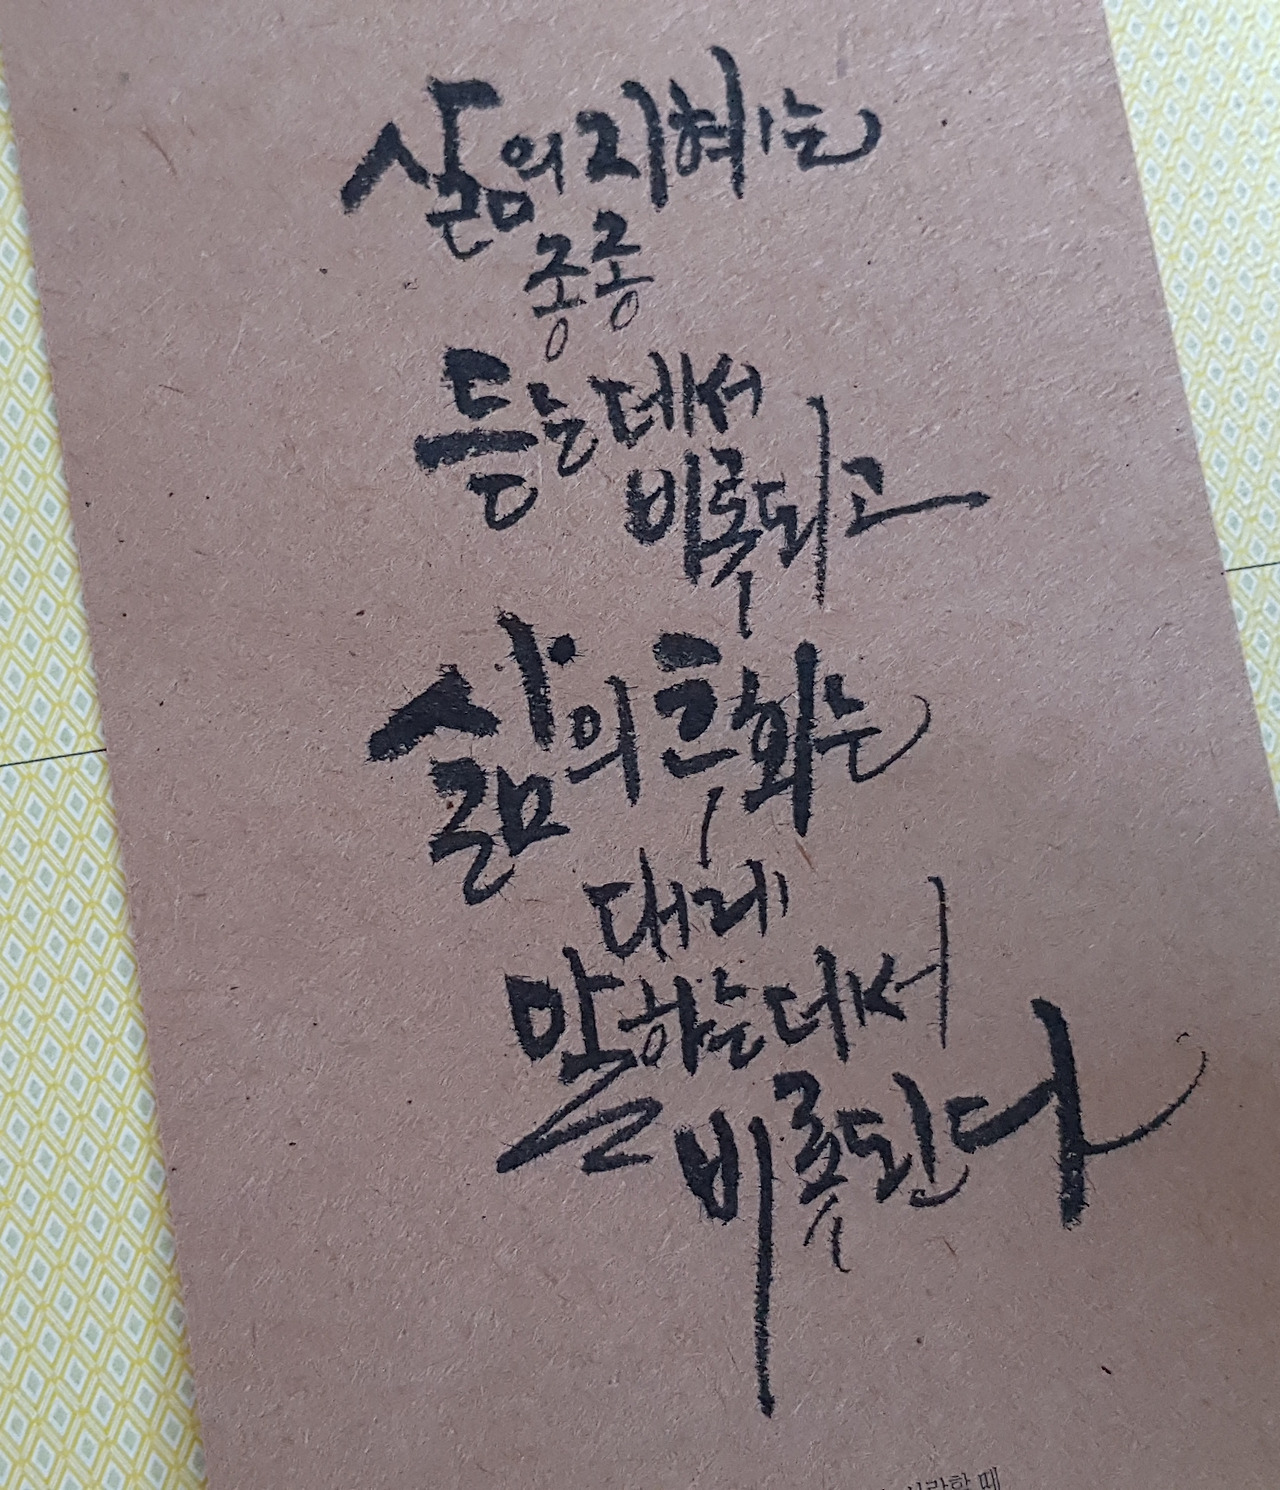 삶의 지혜는
종종
듣는데서
비롯되고
삶의 후회는
대개
말하는데서
비롯된다
사랑할 때